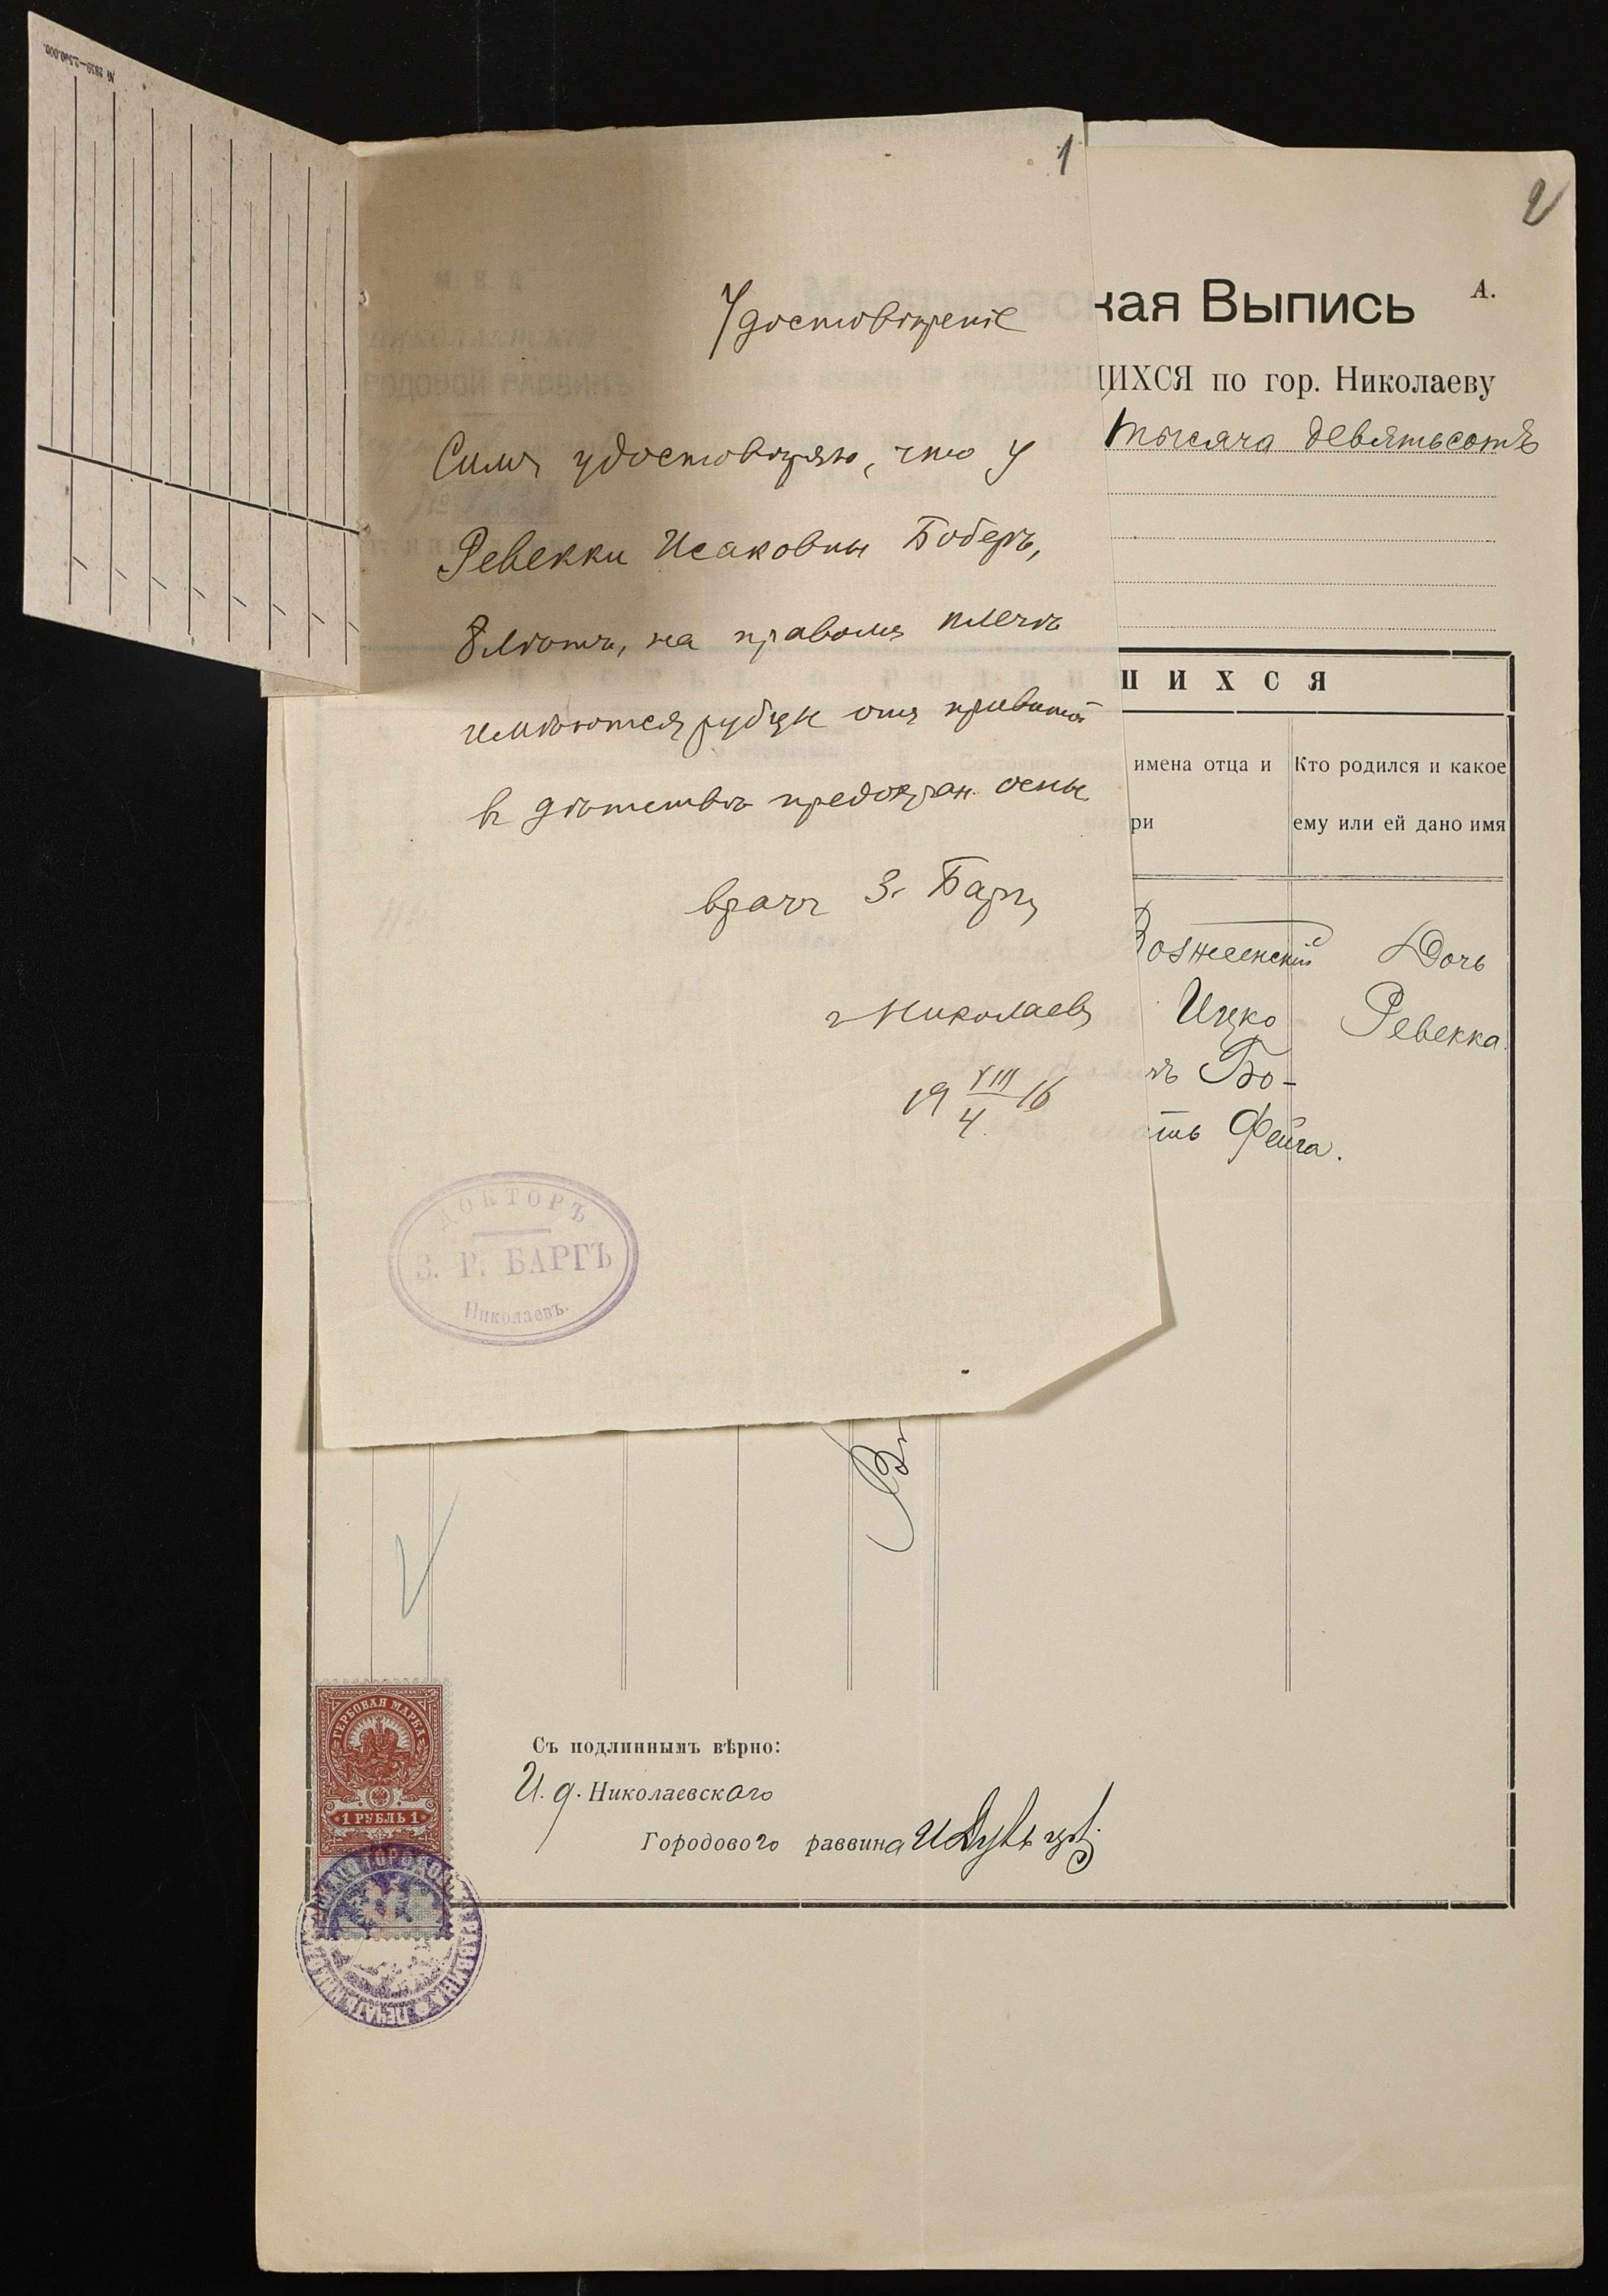 № 2839—2.500.000.
1
Удостовѣреніе
Симъ удостовѣряю, что у
Ревекки Исаковны Боберъ,
8 лѣтъ, на правомъ плечѣ
имѣются рубцы отъ привитой
въ дѣтствѣ предохран. оспы.
врачъ З. Баргъ
г Николаевъ
19 VIII/4 16
ДОКТОРЪ
З. Р. БАРГЪ
Николаевъ.
2
кая Выпись
А.
ИХСЯ по гор. Николаеву
тысяча девятьсотъ
Ш И Х С Я
имена отца и
ри
Кто родился и какое
ему или ей дано имя
Дочь
Ицко Ревекка.
ъ Бо-
ть Фейга.
ГЕРБОВАЯ МАРКА
1 РУБЛЬ 1
Съ подлиннымъ вѣрно:
И. д. Николаевского
Городового раввина